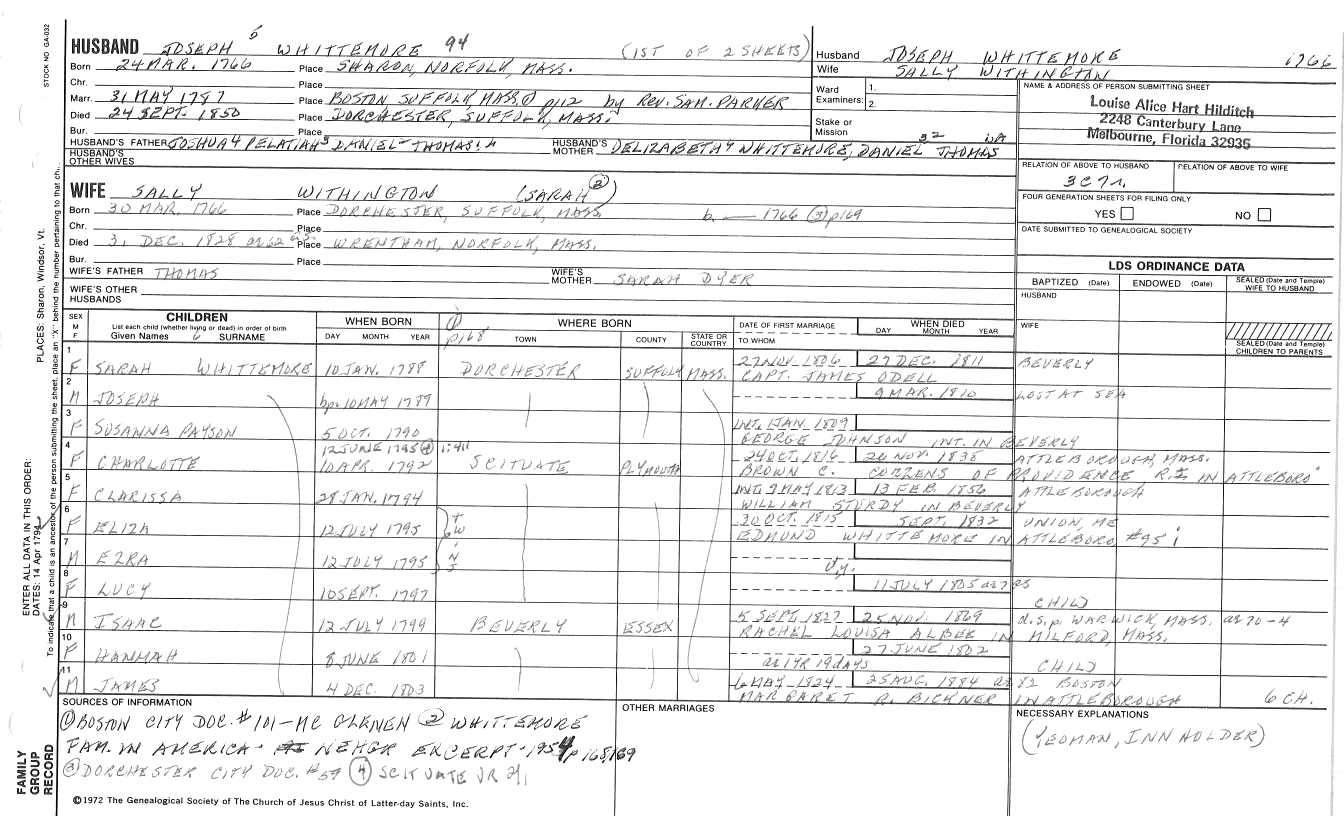 STOCK NO GA-032
HUSBAND JOSEPH 6 WHITTEMORE 94 (1ST OF 2 SHEETS)
Born 24 MAR. 1766 Place SHARON, NORFOLK, MASS.
Chr. Place
Marr. 31 MAY 1787 Place BOSTON SUFFOLK, MASS. ① p112 by REV. SAM. PARKER
Died 24 SEPT. 1850 Place DORCHESTER, SUFFOLK, MASS.
Bur. Place
HUSBAND'S FATHER JOSHUA 4 PELATIAH 3 DANIEL THOMAS
HUSBAND'S MOTHER ELIZABETH WHITTEMORE, DANIEL THOMAS
HUSBAND'S OTHER WIVES
Husband JOSEPH WHITTEMORE 1766
Wife SALLY WITHINGTON
Ward 1.
Examiners: 2.
Stake or
Mission
NAME & ADDRESS OF PERSON SUBMITTING SHEET
Louise Alice Hart Hilditch
2248 Canterbury Lane
Melbourne, Florida 32935
RELATION OF ABOVE TO HUSBAND RELATION OF ABOVE TO WIFE
3C7r.
FOUR GENERATION SHEETS FOR FILING ONLY
YES NO
DATE SUBMITTED TO GENEALOGICAL SOCIETY
WIFE SALLY WITHINGTON (SARAH ②)
Born 30 MAR. 1766 Place DORCHESTER, SUFFOLK, MASS. b. — 1766 ③ p169
Chr. Place
Died 31 DEC. 1828 ae 62 Place WRENTHAM, NORFOLK, MASS.
Bur. Place
WIFE'S FATHER THOMAS WIFE'S MOTHER SARAH DYER
WIFE'S OTHER HUSBANDS
LDS ORDINANCE DATA
BAPTIZED (Date) ENDOWED (Date) SEALED (Date and Temple) WIFE TO HUSBAND
HUSBAND
WIFE
SEALED (Date and Temple) CHILDREN TO PARENTS
SEX M F CHILDREN WHEN BORN ① WHERE BORN DATE OF FIRST MARRIAGE WHEN DIED
List each child (whether living or dead) in order of birth
Given Names 6 SURNAME DAY MONTH YEAR p168 TOWN COUNTY STATE OR COUNTRY TO WHOM DAY MONTH YEAR
1 27 NOV. 1806 27 DEC. 1811 BEVERLY
F SARAH WHITTEMORE 10 JAN. 1788 DORCHESTER SUFFOLK MASS. CAPT. JAMES ODELL
2 9 MAR. 1810 LOST AT SEA
M JOSEPH bp. 10 MAY 1789
3 INT. 1 JAN. 1809
F SUSANNA PAYSON 5 OCT. 1790 GEORGE JOHNSON INT. IN BEVERLY
4 12 JUNE 1795 ④ 1:411 24 OCT. 1816 26 NOV. 1838 ATTLEBOROUGH, MASS.
F CHARLOTTE 10 APR. 1792 SCITUATE PLYMOUTH BROWN C. COZZENS OF PROVIDENCE, R.I. IN ATTLEBORO
5 INT. 9 MAY 1813 13 FEB. 1856 ATTLEBOROUGH
F CLARISSA 28 JAN. 1794 WILLIAM STURDY IN BEVERLY
6 30 OCT. 1815 SEPT. 1832 UNION, ME
F ELIZA 12 JULY 1795 EDMUND WHITTEMORE IN ATTLEBORO #95 i
7
M EZRA 12 JULY 1795 d.y.
8 11 JULY 1805 ae 7 CHILD
F LUCY 10 SEPT. 1797
9 5 SEPT 1827 25 NOV. 1869 d.s.p. WARWICK, MASS. ae 70-4
M ISAAC 12 JULY 1799 BEVERLY ESSEX RACHEL LOUISA ALBEE IN MILFORD, MASS.
10 27 JUNE 1802
F HANNAH 8 JUNE 1801 ae 1 YR 19 days CHILD
11 6 MAY 1824 25 AUG. 1884 ae 82 BOSTON
M JAMES 4 DEC. 1803 MARGARET R. BICKNER IN ATTLEBOROUGH 6 CH.
SOURCES OF INFORMATION
① BOSTON CITY DOC. #101 - MC GLENEN ② WHITTEMORE
FAM. IN AMERICA - NEHGR EXCERPT - 1954 p 168, 169
③ DORCHESTER CITY DOC. #57 ④ SCITUATE VR
OTHER MARRIAGES
NECESSARY EXPLANATIONS
(YEOMAN, INN HOLDER)
©1972 The Genealogical Society of The Church of Jesus Christ of Latter-day Saints, Inc.
FAMILY GROUP RECORD
ENTER ALL DATA IN THIS ORDER:
DATES: 14 Apr 1794
PLACES: Sharon, Windsor, Vt.
To indicate that a child is an ancestor of the person submitting the sheet, place an "X" behind the number pertaining to that ch.